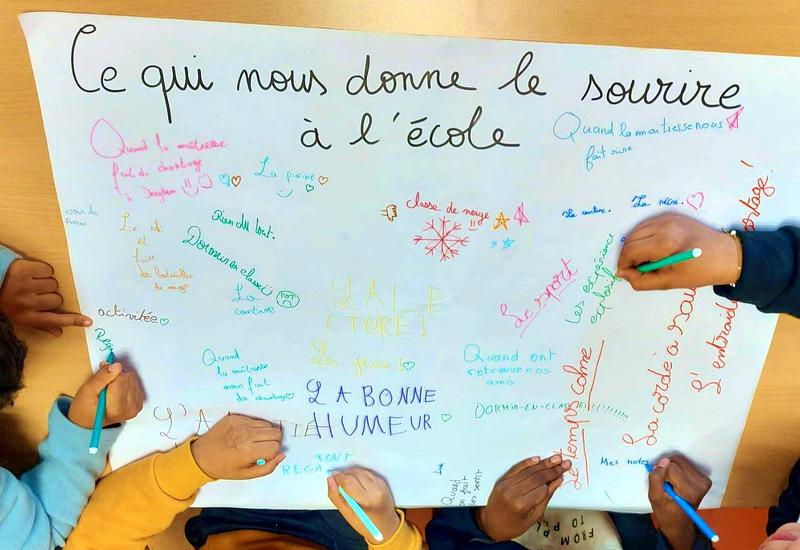 Ce qui nous donne le sourire
à l'école
Quand la maîtresse
fait du chantage
à
La piscine
Quand la maitresse nous
fait rire
voir les
amis
Le
et
faire
des batailles
de neige
Rien du tout.
Dormir en classe
La
cantine
classe de neige
La cantine.
La récré.
Les expérience
Le sport
L'entraide
partage!
activitée
LA LE
CTURE!
Les jeux!
Quand
la maîtresse
nous fait
du chantage
LA BONNE
HUMEUR
Quand ont
retrouve nos
amis
DORMIR-EN-CLASSE!!!!!!!!
Le temps calme
La corde à sau
L'A
TIÉ
REGA
Quand
on fait
des sortit
Mes notes
FROM
TO